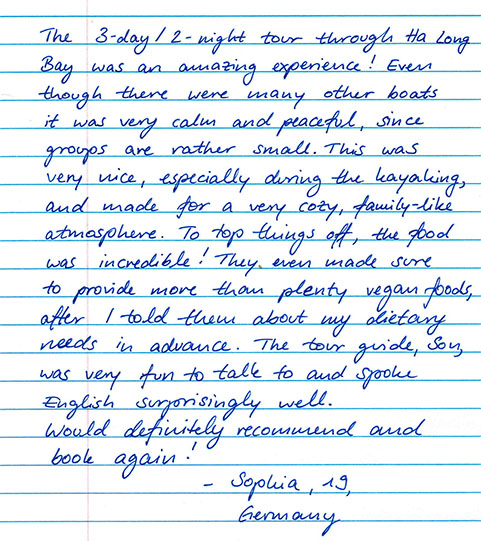 The 3-day/2-night tour through Ha Long
Bay was an amazing experience! Even
though there were many other boats
it was very calm and peaceful, since
groups are rather small. This was
very nice, especially during the kayaking,
and made for a very cozy, family-like
atmosphere. To top things off, the food
was incredible! They even made sure
to provide more than plenty vegan foods,
after I told them about my dietary
needs in advance. The tour guide, Son,
was very fun to talk to and spoke
English surprisingly well.
Would definitely recommend and
book again!
- Sophia, 19,
Germany